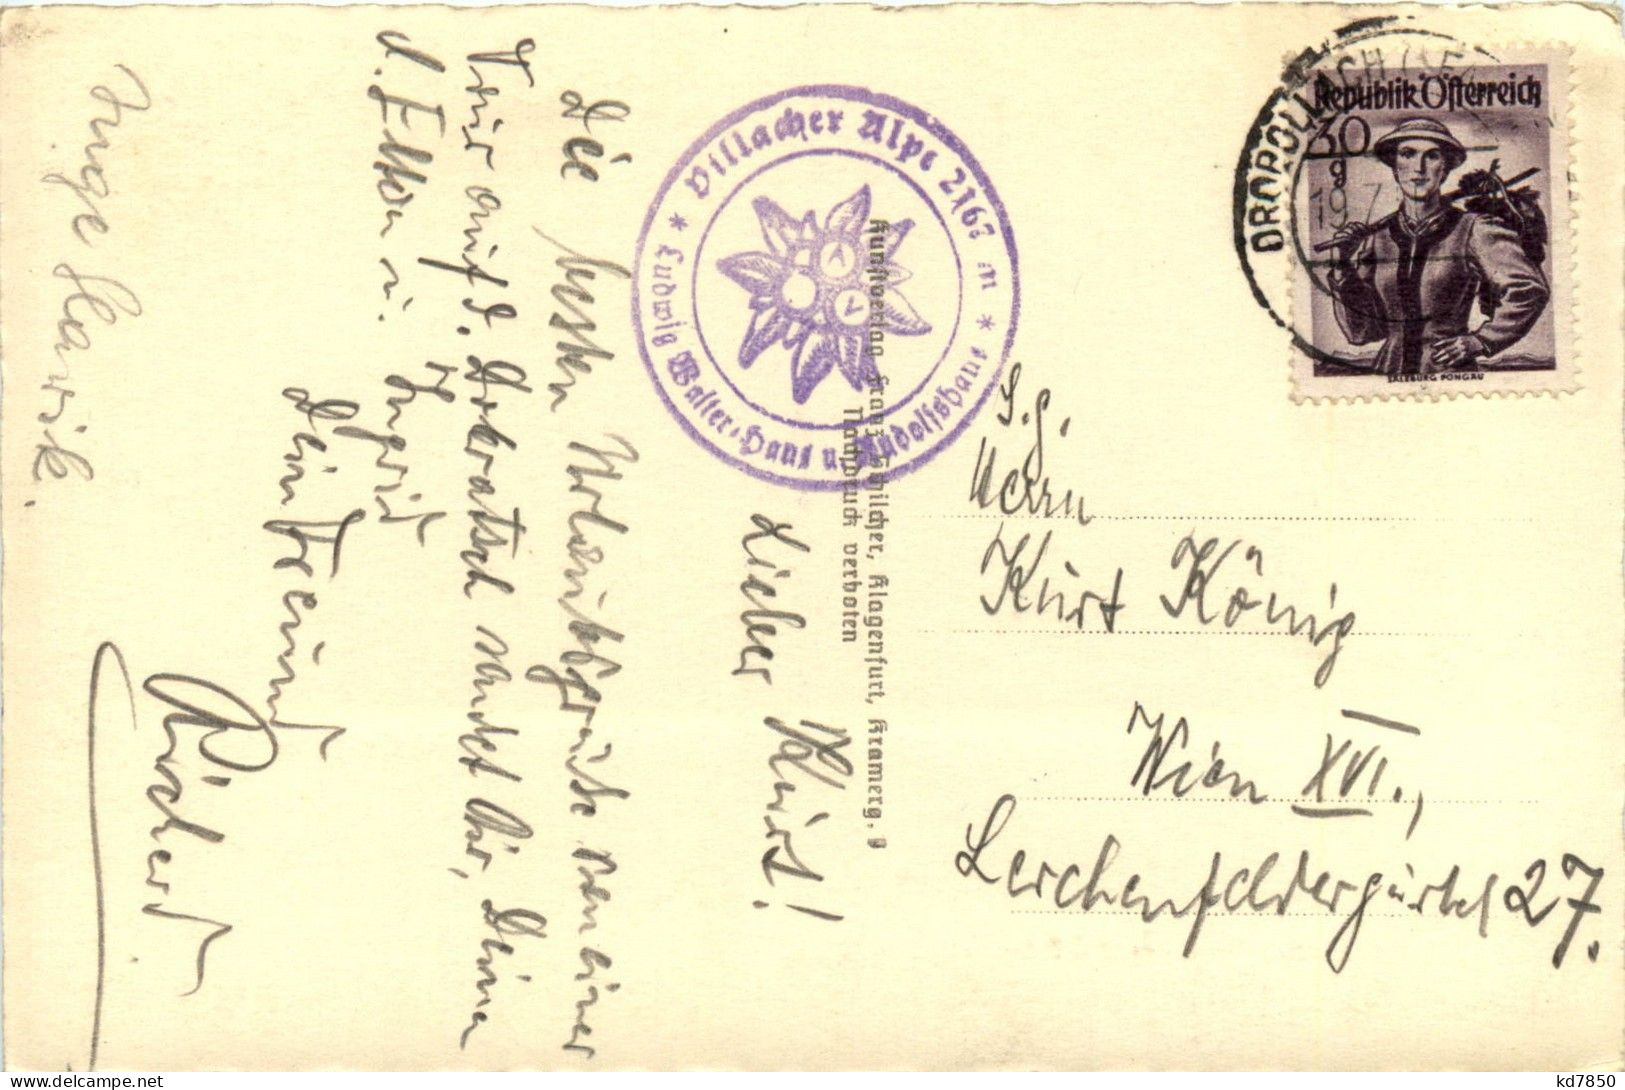 Lieber Kurt!
Die besten Urlaubsgrüße von einer
Tour auf d. Dobratsch sendet Dir, Deinen
l. Eltern u. Ingrid
Dein Freund
Inge Hawik.
Villacher Alpe 2167 m
* Ludwig Walter-Haus u. Rudolfshaus *
Kunstverlag Franz Schilcher, Klagenfurt, Kramerg. 9
Nachdruck verboten
DROBOLLACH
Republik Österreich
30
SALZBURG PONGAU
S.g.
Herrn
Kurt König
Wien XVI.,
Lerchenfeldergürtel 27.
kd7850